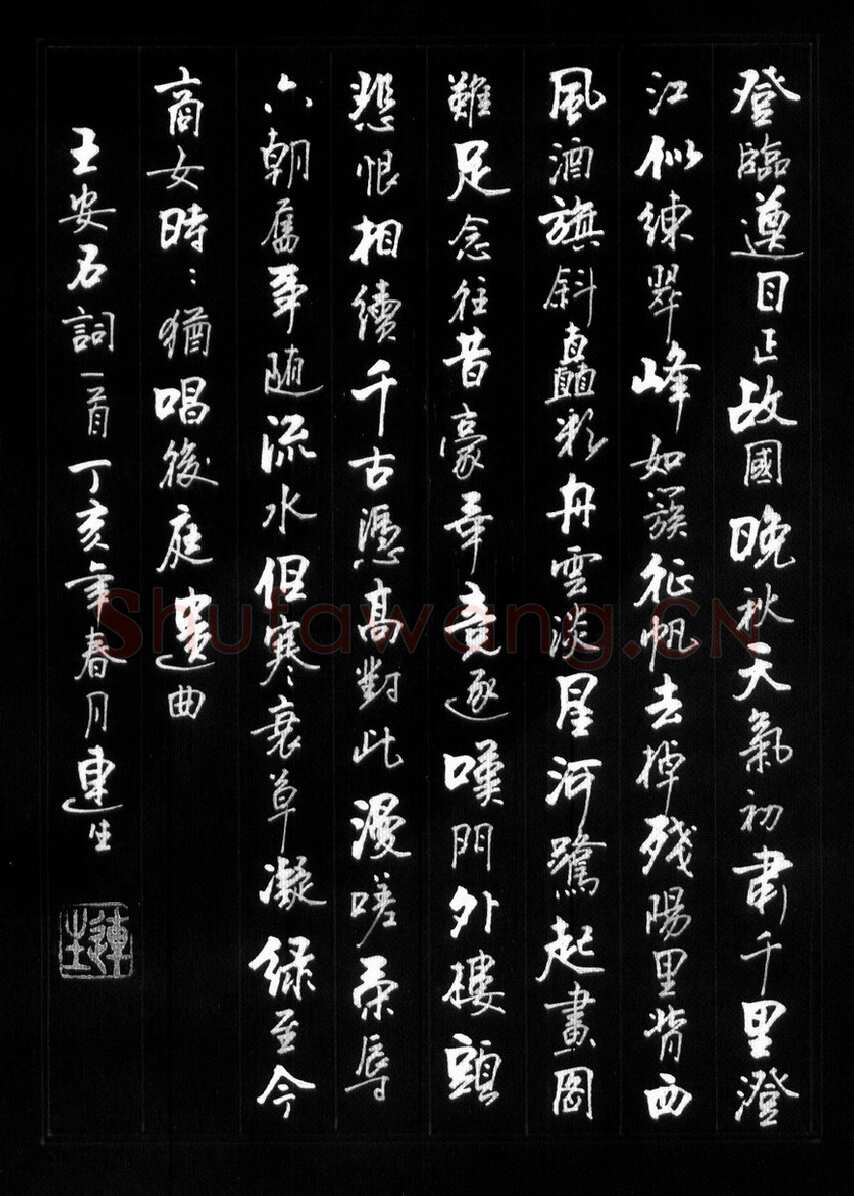 登臨遵目正故國晚秋天氣初肅千里澄
江似練翠峰如簇征帆去棹残陽里背西
風酒旗斜矗彩舟雲淡星河鷺起畫圖
難足念往昔豪華竞逐嘆門外樓頭
悲恨相續千古憑高對此漫嗟荣辱
六朝舊事随流水但寒衰草凝绿至今
商女時：猶唱後庭遺曲
王安石詞一首丁亥年春月連生
連生
Shufawang.CN